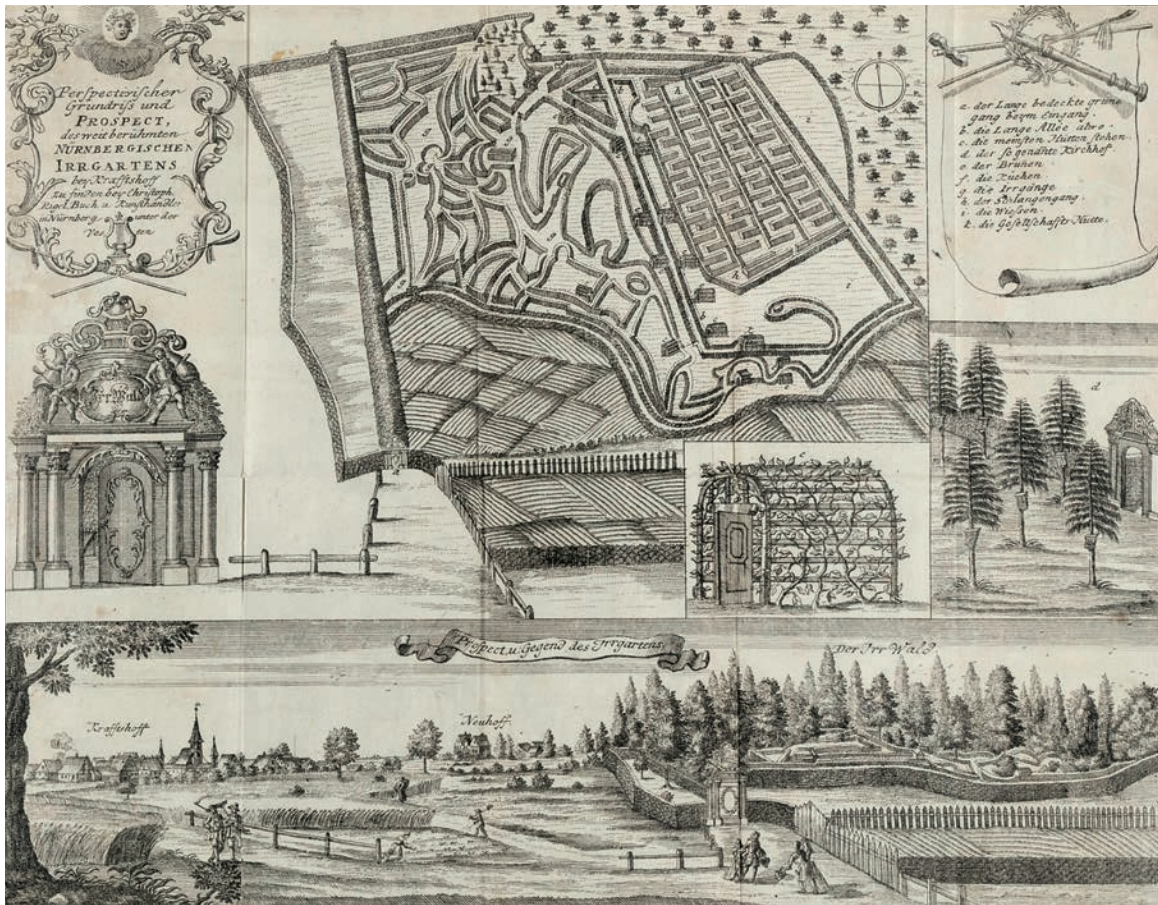 Perspectivischer
Grundriss und
PROSPECT,
des weit berühmten
NÜRNBERGISCHEN
IRRGARTENS
bey Krafftshoff
zu finden bey Christoph
Rigel Buch u. Kunsthändler
in Nürnberg unter der
Ves ten
a. der Lange bedeckte grüne
gang beym Eingang.
b. die Lange Allée
c. die meinsten Hütten stehen
d. der so genañte Kirchhof
e. der Bruñen
f. die Küchen
g. die Irrgänge
h. der Schlangengang.
i. die Wiessen
k. die Gesellschaffts Hütte.
Irr Wald
d
Prospect u. Gegend des Irrgartens
Der Irr Wald
Krafftshoff
Neuhoff